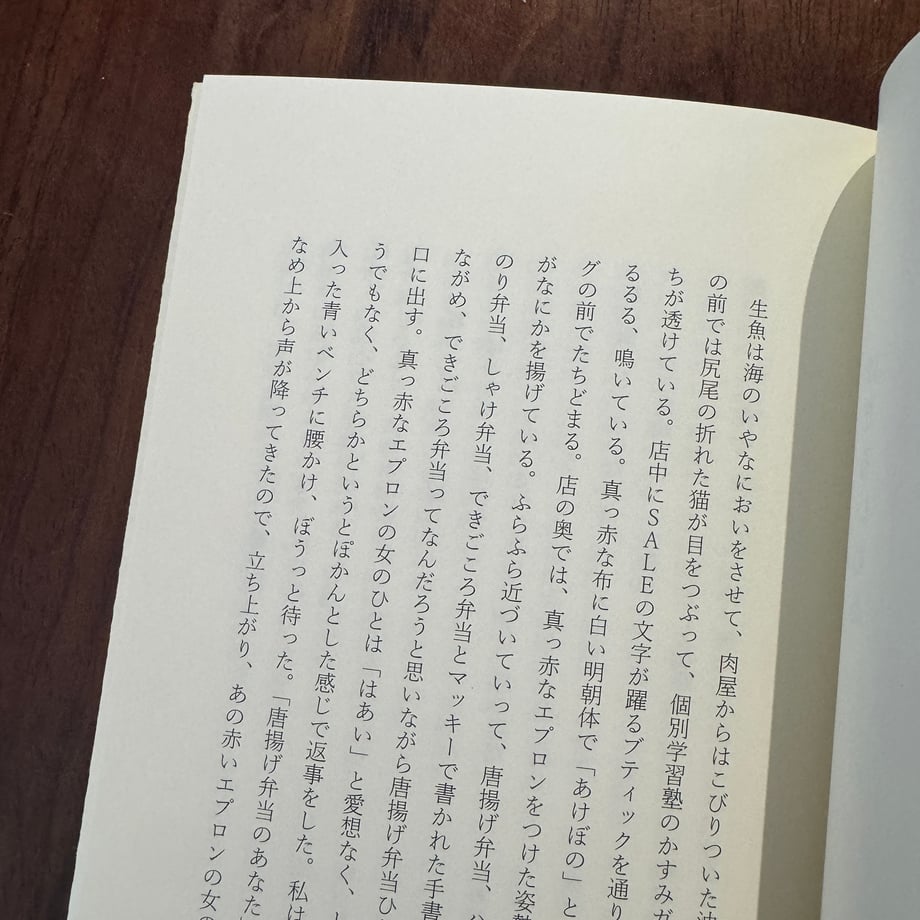 生魚は海のいやなにおいをさせて、肉屋からはこびりついた油
の前では尻尾の折れた猫が目をつぶって、個別学習塾のかすみガ
ちが透けている。店中にSALEの文字が躍るブティックを通り
るるる、鳴いている。真っ赤な布に白い明朝体で「あけぼの」と
グの前でたちどまる。店の奥では、真っ赤なエプロンをつけた姿勢
がなにかを揚げている。ふらふら近づいていって、唐揚げ弁当、
のり弁当、しゃけ弁当、できごころ弁当とマッキーで書かれた手書
ながめ、できごころ弁当ってなんだろうと思いながら唐揚げ弁当ひ
口に出す。真っ赤なエプロンの女のひとは「はあい」と愛想なく、
うでもなく、どちらかというとぽかんとした感じで返事をした。私は
入った青いベンチに腰かけ、ぼうっと待った。「唐揚げ弁当のあなた
なめ上から声が降ってきたので、立ち上がり、あの赤いエプロンの女の